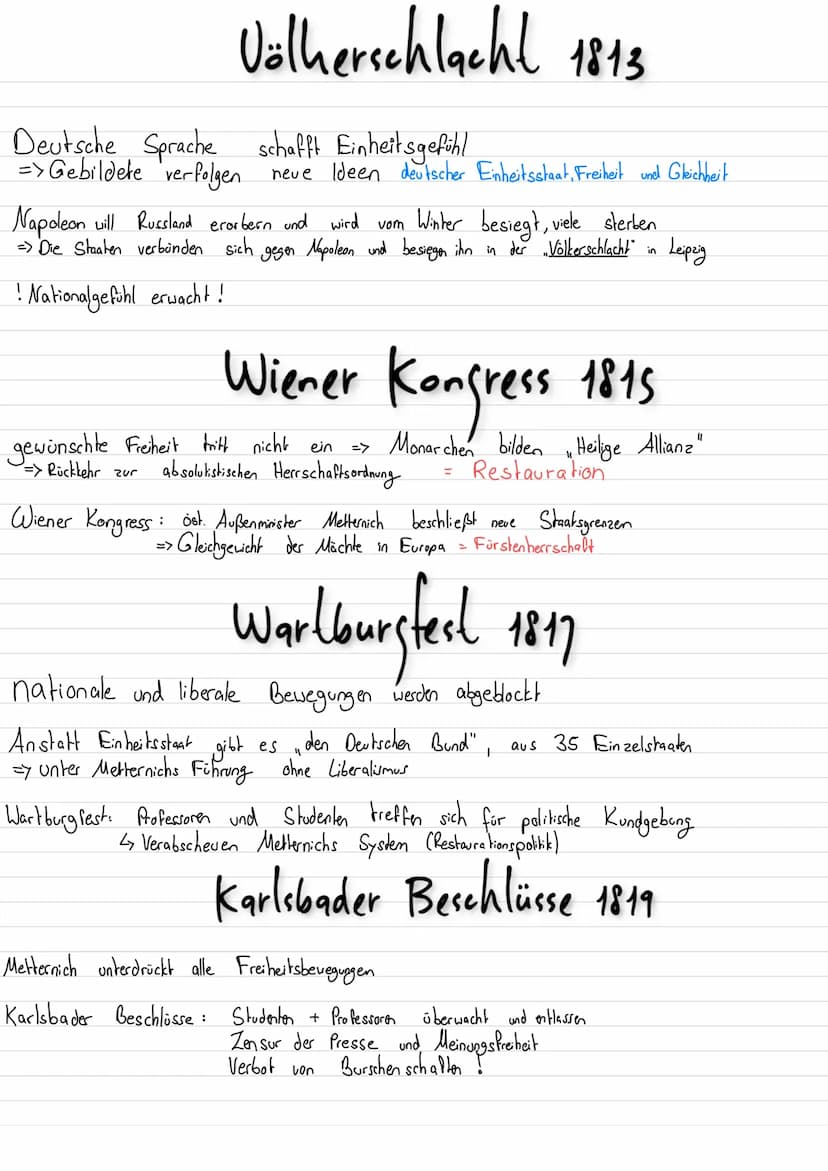 Völkerschlacht 1813
Deutsche Sprache schafft Einheitsgefühl
=> Gebildete verfolgen neue Ideen deutscher Einheitsstaat, Freiheit und Gleichheit
Napoleon will Russland erorbern und wird vom Winter besiegt, viele sterben
=> Die Staaten verbünden sich gegen Napoleon und besiegen ihn in der „Völkerschlacht" in Leipzig
! Nationalgefühl erwacht !
Wiener Kongress 1815
gewünschte Freiheit tritt nicht ein => Monarchen bilden „Heilige Allianz"
=> Rückkehr zur absolutistischen Herrschaftsordnung = Restauration
Wiener Kongress: öst. Außenminister Metternich beschließt neue Staatsgrenzen
=> Gleichgewicht der Mächte in Europa = Fürstenherrschaft
Wartburgfest 1817
nationale und liberale Bewegungen werden abgeblockt
Anstatt Einheitsstaat gibt es „den Deutschen Bund", aus 35 Einzelstaaten
=> unter Metternichs Führung ohne Liberalismus
Wartburgfest: Professoren und Studenten treffen sich für politische Kundgebung
↳ Verabscheuen Metternichs System (Restaurationspolitik)
Karlsbader Beschlüsse 1819
Metternich unterdrückt alle Freiheitsbewegungen
Karlsbader Beschlüsse: Studenten + Professoren überwacht und entlassen
Zensur der Presse und Meinungsfreiheit
Verbot von Burschenschaften !